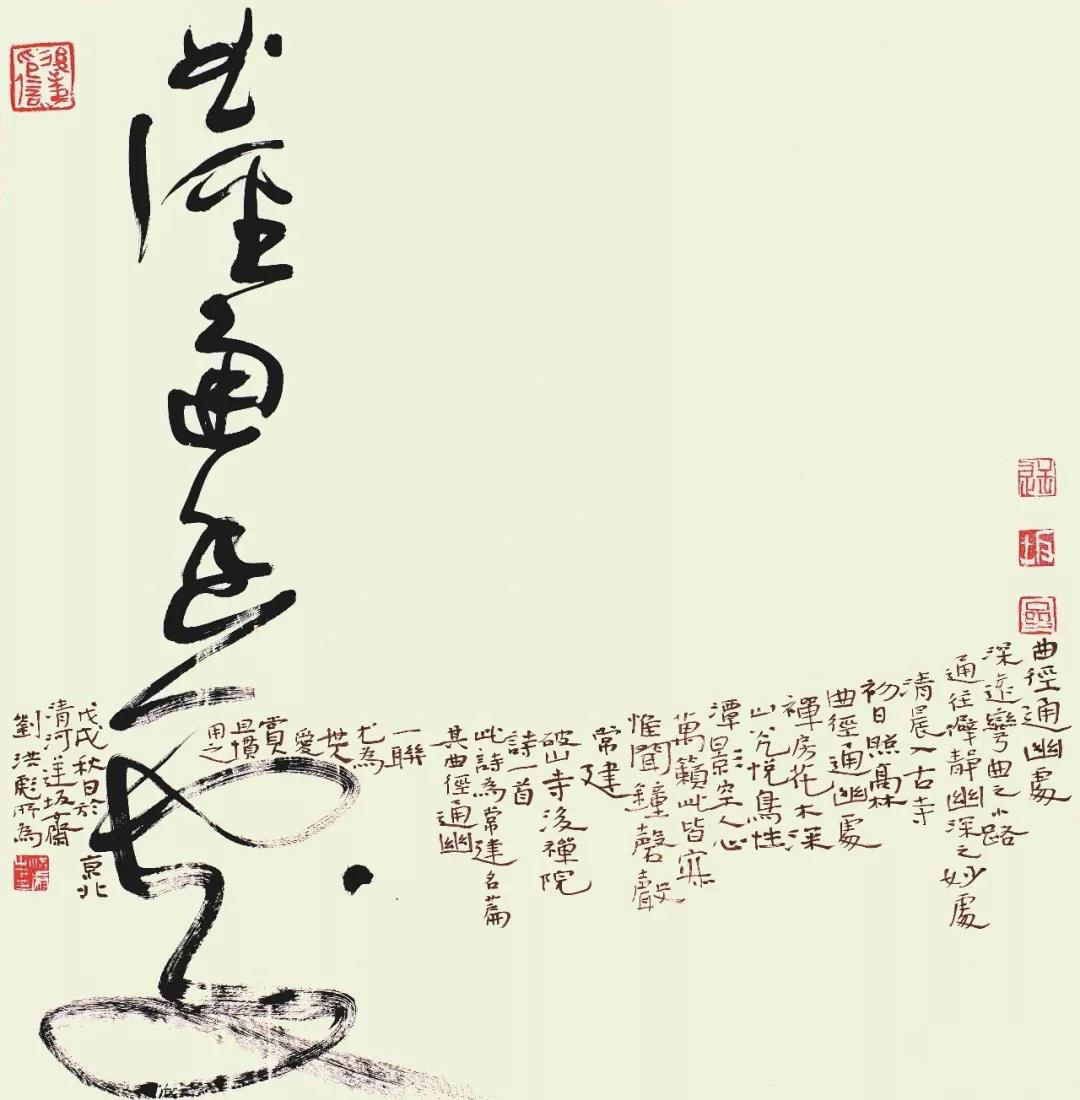 曲徑通幽處
曲徑通幽處
深遠彎曲之小路
通往僻靜幽深之妙處
清晨入古寺
初日照高林
曲徑通幽處
禪房花木深
山光悅鳥性
潭影空人心
萬籟此皆寂
惟聞鐘磬聲
常建
破山寺後禪院
詩一首
此詩為常建名篇
其曲徑通幽
一聯
尤為
世人
愛
賞
且慣
用之
戊戌秋日於京北
清河逆坂齋
劉洪彪所為
逆
坂
齋